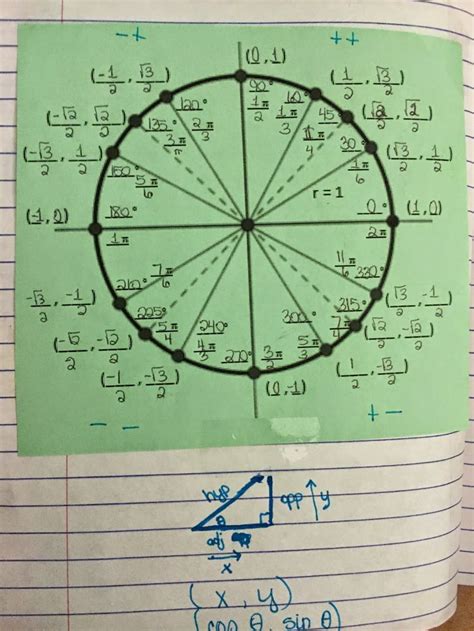 -+
++
(0, 1)
(-1/2, √3/2)
(1/2, √3/2)
(-√2/2, √2/2)
(√2/2, √2/2)
(-√3/2, 1/2)
(√3/2, 1/2)
(-1, 0)
(1, 0)
90°
1π/2
120°
2π/3
60°
1π/3
135°
45°
1π/4
150°
5π/6
30°
1π/6
r = 1
180°
1π
0°
2π
210°
7π/6
11π/6
330°
225°
5π/4
315°
7π/4
240°
4π/3
300°
5π/3
270°
3π/2
-√3/2, -1/2)
(√3/2, -1/2)
(-√2/2, -√2/2)
(√2/2, -√2/2)
(-1/2, -√3/2)
(1/2, -√3/2)
(0, -1)
- -
+ -
hyp
opp ↑ y
θ
adj
→
x
(x, y)
(cos θ, sin θ)